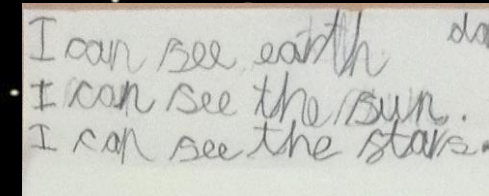 I can see earth
I can see the sun.
I can see the stars.